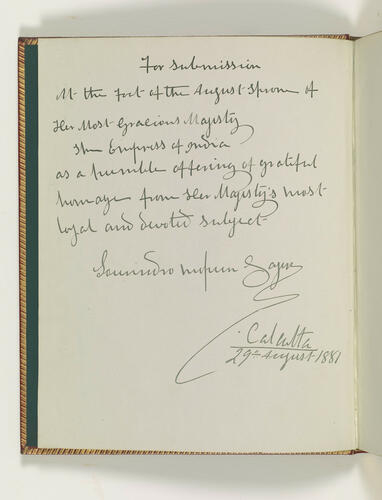 For submission
At the Foot of the August Throne of
Her Most Gracious Majesty
The Empress of India
as a humble offering of grateful
homage from Her Majesty's most
loyal and devoted subject
Sourindro Mohun Tagore
Calcutta
29th August 1881